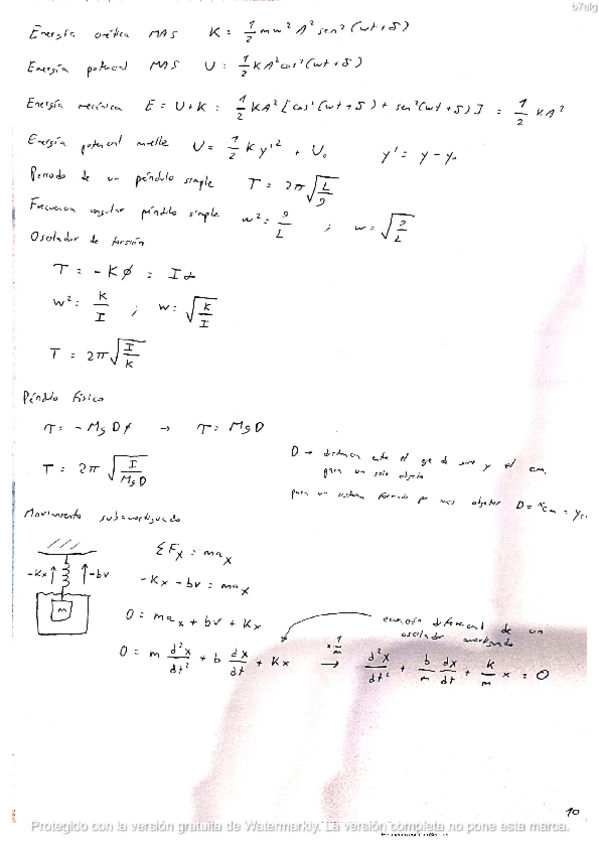 b7alg
Energía cinética MAS K = 1/2 mw² A² sen² (wt + δ)
Energía potencial MAS U = 1/2 KA² cos² (wt + δ)
Energía mecánica E = U + K = 1/2 KA² [cos² (wt + δ) + sen² (wt + δ)] = 1/2 KA²
Energía potencial muelle U = 1/2 K y'² + U₀ y' = y - y₀
Periodo de un péndulo simple T = 2π√(L/g)
Frecuencia angular péndulo simple w² = g/L ; w = √(g/L)
Oscilador de torsión
τ = -Kϕ = Iα
w² = K/I ; w = √(K/I)
T = 2π√(I/K)
Péndulo físico
τ = -MgDϕ → τ = MgD
T = 2π√(I/MgD)
D → distancia entre el eje de giro y el cm.
para un solo objeto
para un sistema formado por mas objetos D = x_cm =
Movimiento subamortiguado
ΣFₓ = maₓ
-Kx -bv
-Kx - bv = maₓ
m
0 = maₓ + bv + Kx
ecuación diferencial de un
oscilador amortiguado
0 = m d²x/dt² + b dx/dt + Kx x 1/m → d²x/dt² + b/m dx/dt + K/m x = 0
10
Protegido con la versión gratuita de Watermarkly. La versión completa no pone esta marca.